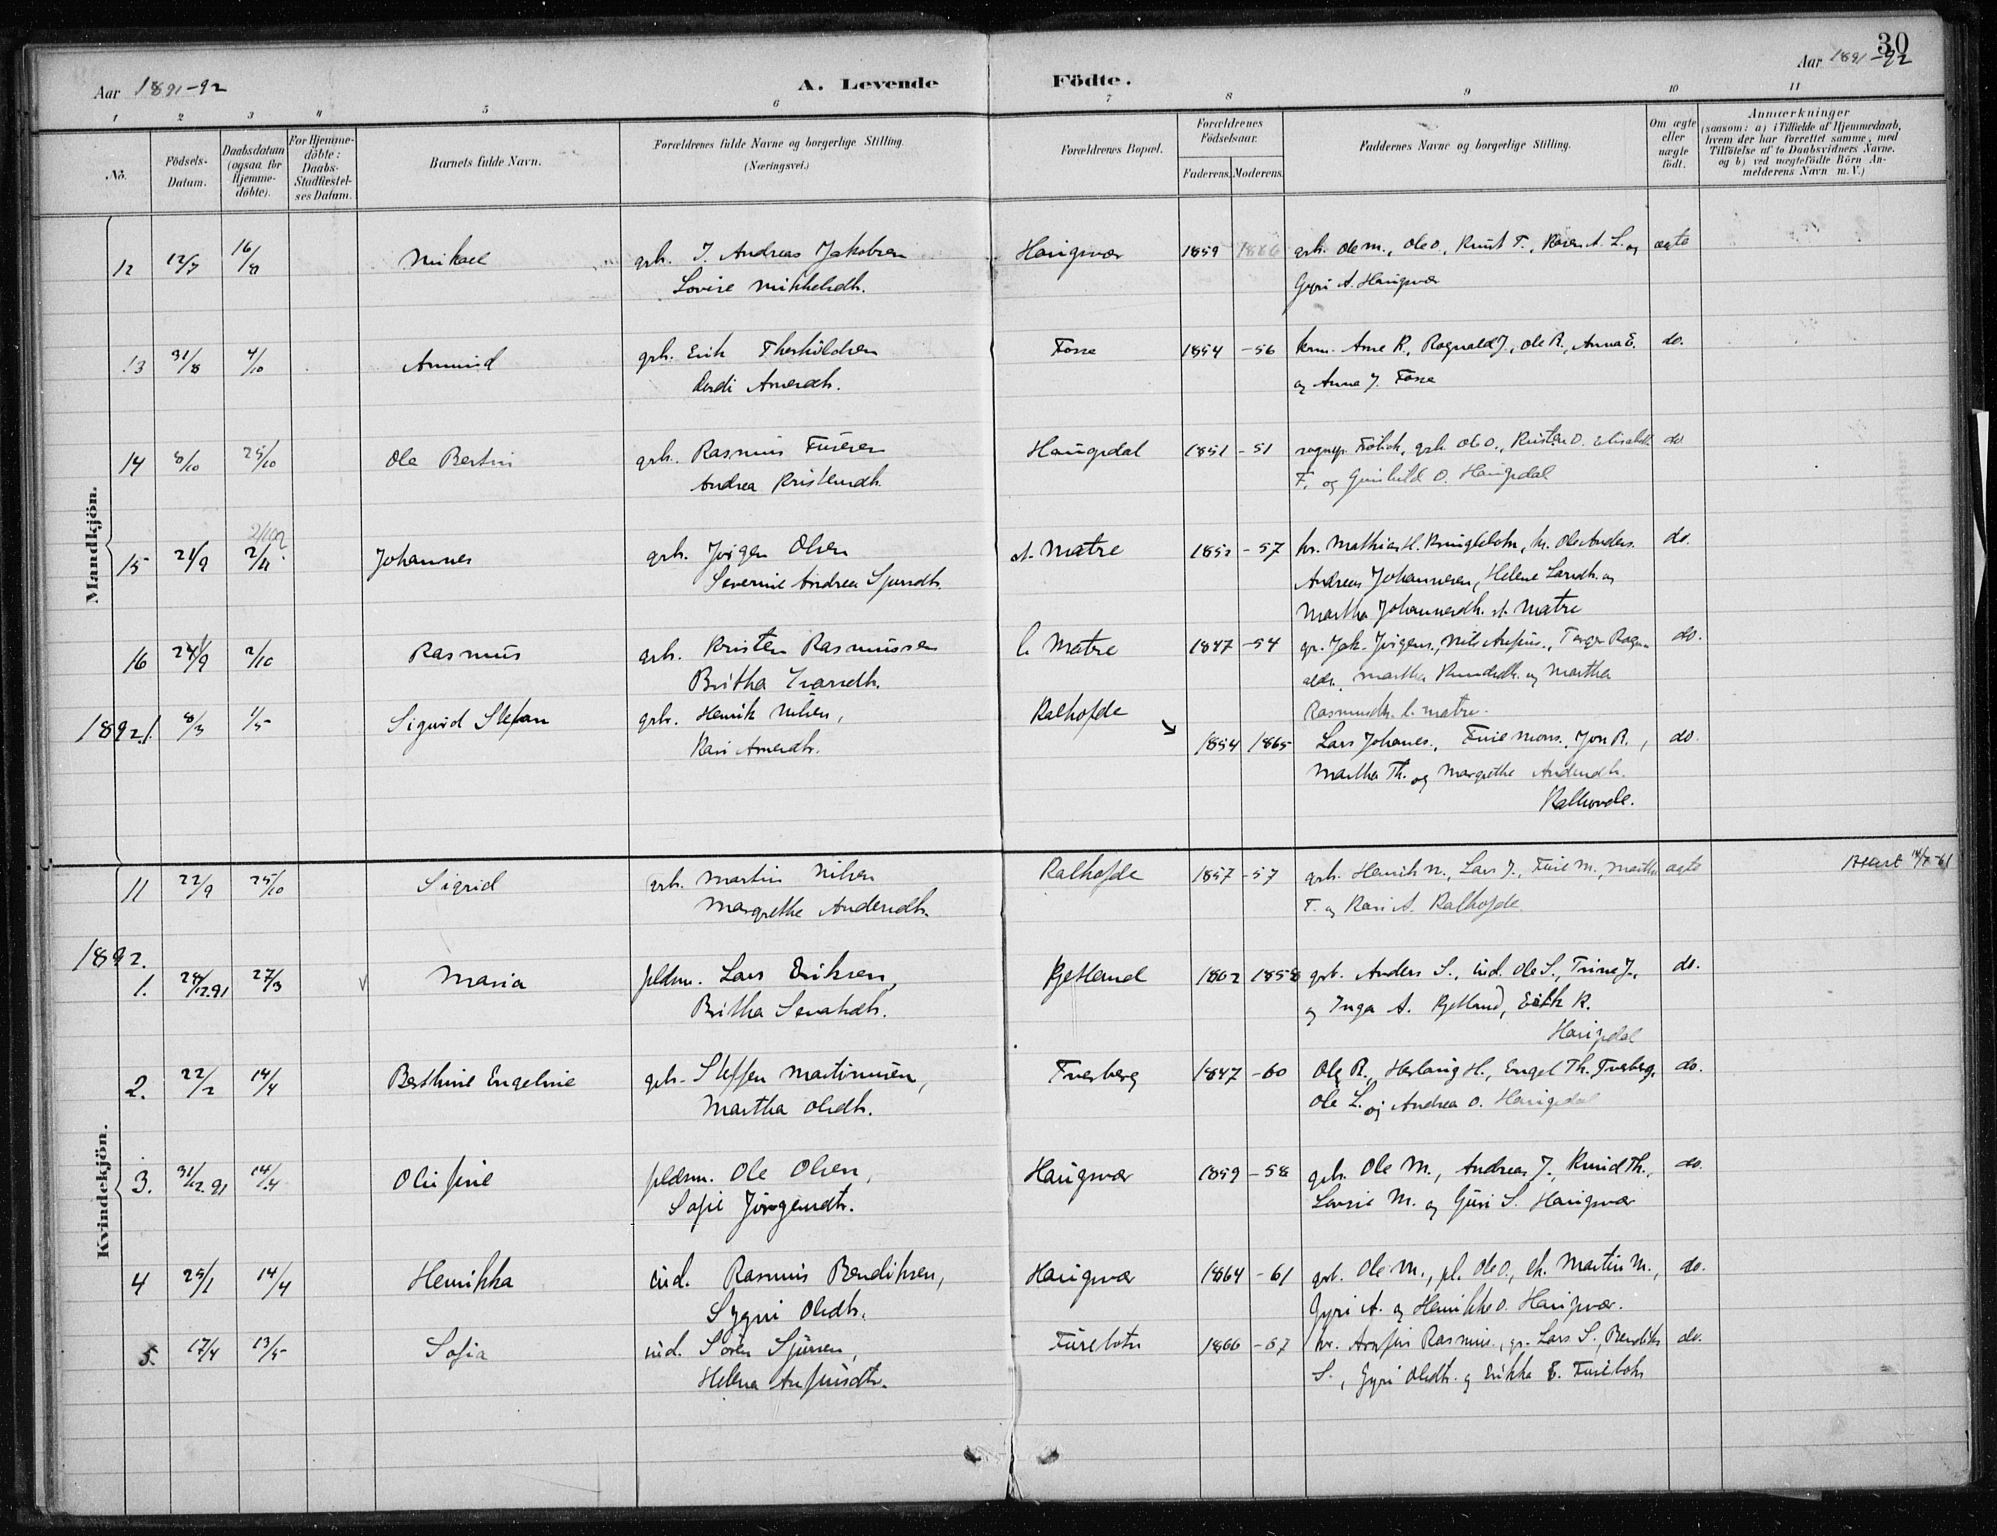 30
Aar 1891-92
A. Levende
Födte.
Aar 1891-92
1 2 3 4 5 6 7 8 9 10 11
No.
Födsels-Datum.
Daabsdatum (ogsaa for Hjemme-döbte).
For Hjemme-döbte: Daabs-Stadfæstel-ses Datum.
Barnets fulde Navn.
Forældrenes fulde Navne og borgerlige Stilling.
(Næringsvei.)
Forældrenes Bopæl.
Forældrenes Födselsaar.
Faderens. Moderens.
Faddernes Navne og borgerlige Stilling.
Om ægte eller uægte födt.
Anmærkninger
(saasom: a) i Tilfælde af Hjemmedaab, hvem der har forrettet samme, med Tilföielse af to Daabsvidners Navne. og b) ved uægtefödte Börn Anmelderens Navn m. V.)
Mandkjön.
12 12/7 16/8 Mikael grb. J. Andreas Jakobsen Haugsvær 1859 1866 grb. Ole M., Ole O., Knut T., Karen A. L. og ægte
Lovise Mikkelsdtr.
Gyri A. Haugsvær
13 31/8 4/10 Anund grb. Erik Therkildsen Fosse 1854 -56 Arne R., Ragnald J., Ole R., Anna E. do.
Anersdtr.
og Anna J. Fosse
14 8/10 25/10 Ole Bertin grb. Rasmus Furesen Haugsdal 1851 -51 grb. Ole O., Kristen O. do
Andrea Kristensdtr.
F. og Gunhild O. Haugsdal
15 21/9 2/11 Johannes grb. Jörgen Olsen st. Matre 1851 -57 kr. Mathias H. Kringlebotn, kr. Ole Anders. do.
Severine Andrea Sjursdtr.
Andreas Johannesen, Helene Larsdtr. og
Martha Johannesdtr. st. Matre
16 24/9 2/10 Rasmus grb. Kristen Rasmussen l. Matre 1847 -54 gr. Jak. Jörgens., Nils Anfins., Torger Ragn- do.
Britha Ivarsdtr.
alds., Martha Knudsdtr. og Martha
Rasmusdtr. l. Matre.
1892. 1. 8/3 1/5 Sigurd Stefan grb. Henrik Nilsen, Kalhofde
Kari Arnesdtr.
1854 1865 Lars Johanes., Furie Mons., Jon R., do.
Martha Th. og Margrethe Andersdtr.
Kalhovde.
Kvindekjön.
11 22/9 25/10 Sigrid grb. Martin Nilsen Kalhofde 1857 -57 grb. Henrik N., Lars J., Furie M., Martha ægte
Margrethe Andersdtr.
T. og Kari A. Kalhofde
1892.
1. 28/12.91 27/3 Maria pldsm. Lars Eriksen, Kjetland 1862 1858 grb. Anders S., ind. Ole S., Trine J., do.
Britha Sjursdtr.
og Inga A. Kjetland, Erik K.
Haugsdal
2. 22/2 14/4 Berthine Engeline grb. Steffen Martinusen, Tverberg 1847 -60 Ole R., Herlaug H., Engel Th. Tverberg, do.
Martha Olsdtr.
Ole L. og Andrea O. Haugsdal
3. 31/12.91 14/4 Olufine pldsm. Ole Olsen, Haugsvær 1859 -58 grb. Ole M., Andreas J., Knud Th., do.
Sofie Jörgensdtr.
Lovise M. og Guri S. Haugsvær
4 25/1 14/4 Henrikka ind. Rasmus Bendiksen, Haugsvær 1864 -61 grb. Ole M., pl. Ole O., Martin M., do.
Sygni Olsdtr.
Gyri A. og Henrikke O. Haugsvær.
5. 17/4 13/5 Sofia ind. Sören Sjursen, Furebotn 1866 -67 kr. Anfin Rasmus., gr. Lars S., Bendik do.
Helena Anfinsdtr.
S., Gyri Olsdtr. og Erikka E. Furebotn